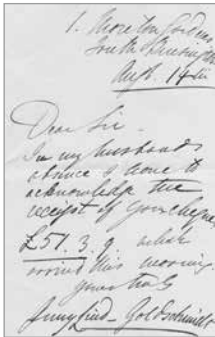 1. Moreton Gardens
South Kensington
Augt. 14th
Dear Sir -
In my husband's
absence I have to
acknowledge the
receipt of your cheque
£51. 3. 9. which
arrived this morning
yours truly
Jenny Lind - Goldschmidt